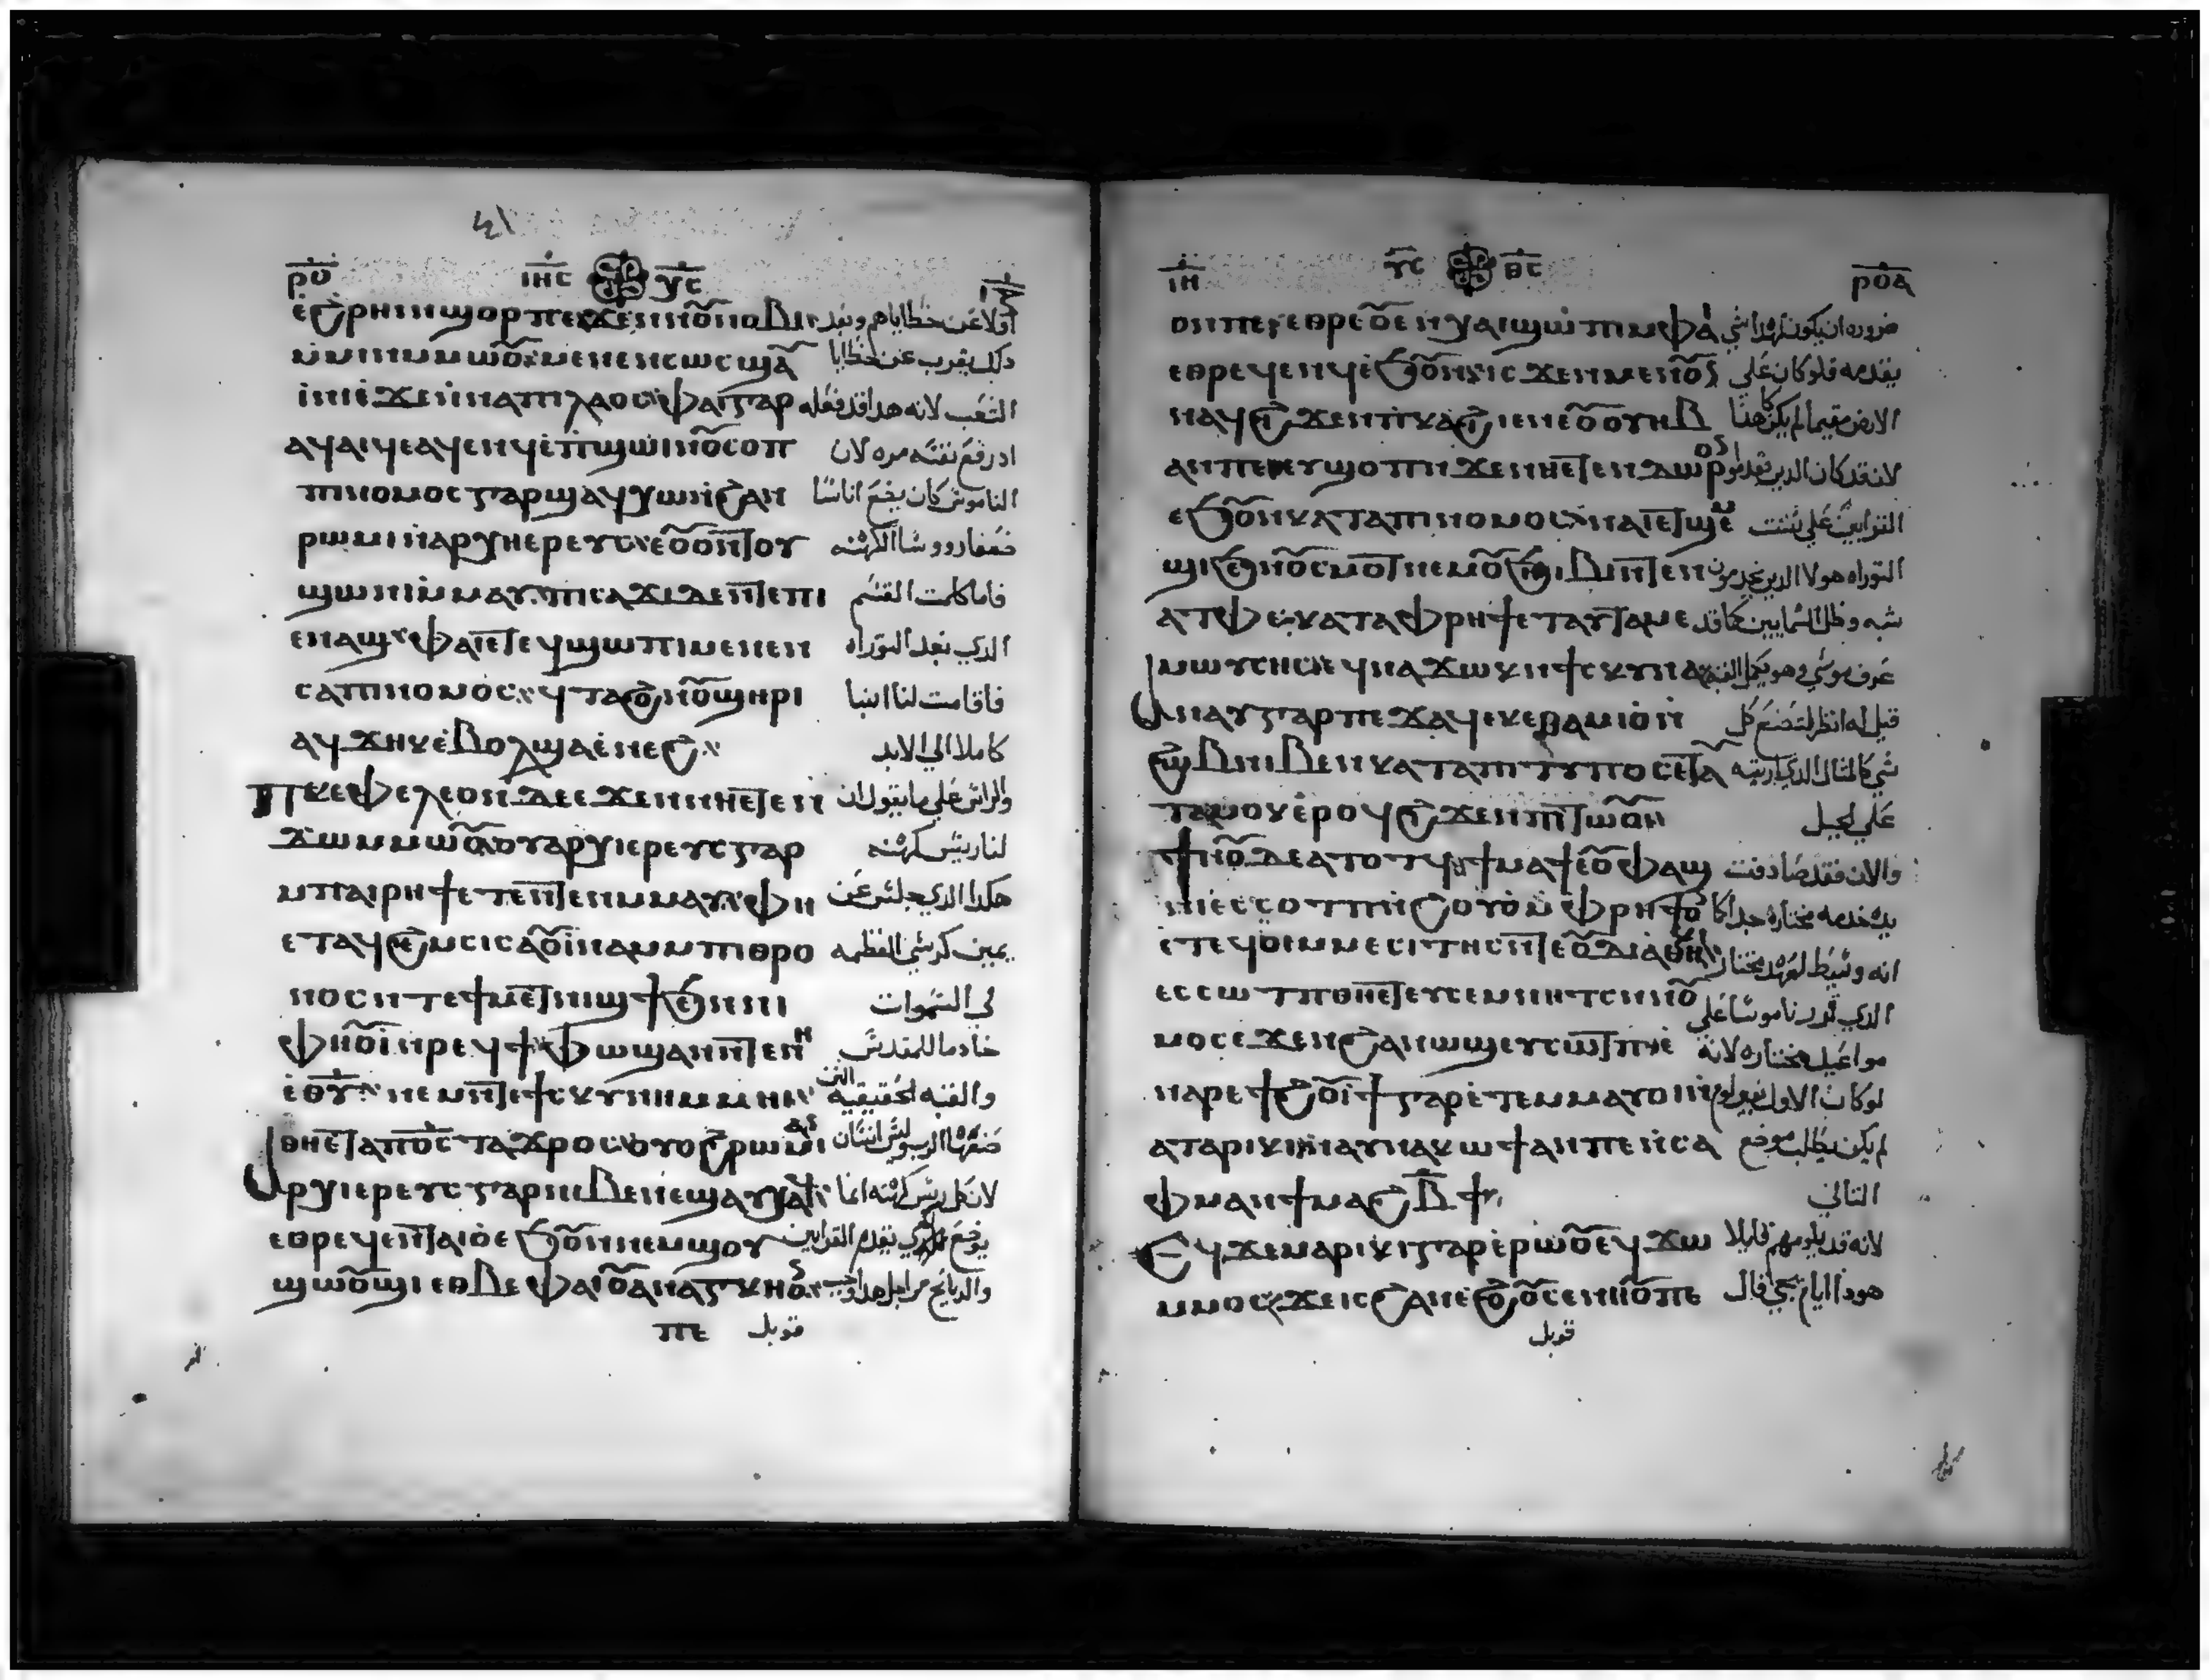 ⲣⲟ ⲓⲏⲥ ⲭⲥ
ⲉϩⲣⲏⲓ ⲛϣⲟⲣⲡ ⲉϫⲉⲛ ⲛⲟⲩⲛⲟⲃⲓ اولا عن خطاياهم وبعد
ⲙⲙⲓⲛ ⲙⲙⲱⲟⲩ ⲙⲉⲛⲉⲛⲥⲱⲥ ϣⲁ دلك يقرب عن خطايا
ⲓⲛⲓ ⲉϫⲉⲛ ⲛⲁ ⲡⲓⲗⲁⲟⲥ ⲫⲁⲓ ⲅⲁⲣ الشعب لانه هدا قد فعله
ⲁϥⲁⲓϥ ⲉⲁϥⲉⲛϥ ⲉⲡϣⲱⲓ ⲛⲟⲩⲥⲟⲡ اد رفع نفسه مره لان
ⲡⲓⲛⲟⲙⲟⲥ ⲅⲁⲣ ϣⲁϥⲭⲱ ⲛϩⲁⲛ الناموس كان يضع اناسا
ⲣⲱⲙⲓ ⲛⲁⲣⲭⲏⲉⲣⲉⲩⲥ ⲉⲟⲩⲟⲛⲧⲟⲩ ضعفا رووسا الكهنه
ϣⲱⲛⲓ ⲙⲙⲁⲩ ⲡⲓⲥⲁϫⲓ ⲇⲉ ⲛⲧⲉ ⲡⲓ فاما كلمت القسم
ⲉⲛⲁϣ ⲫⲁⲓ ⲉⲧⲉϥϣⲱⲡⲓ ⲙⲉⲛⲉⲛ الدي بعد التوراه
ⲥⲁ ⲡⲓⲛⲟⲙⲟⲥ ϥⲧⲁϩⲟ ⲛⲟⲩϣⲏⲣⲓ فاقامت لنا ابنا
ⲁϥϫⲏⲕ ⲉⲃⲟⲗ ϣⲁ ⲉⲛⲉϩ كاملا الي الابد
ⲡⲕⲉⲫⲉⲗⲉⲟⲛ ⲇⲉ ⲉϫⲉⲛ ⲛⲏ ⲉⲧⲉⲛ والراس علي ما يقول ان
ϫⲱ ⲙⲙⲱⲟⲩ ⲟⲩⲁⲣⲭⲓⲉⲣⲉⲩⲥ ⲅⲁⲣ لنا ريس كهنه
ⲙⲡⲁⲓⲣⲏϯ ⲉⲧⲉⲛⲧⲉⲛ ⲙⲙⲁⲩ ⲫⲏ هكدا الدي جلس عن
ⲉⲧⲁϥϩⲉⲙⲥⲓ ⲥⲁⲟⲩⲓⲛⲁⲙ ⲙⲡⲓⲑⲣⲟ يمين كرسي العظمه
ⲛⲟⲥ ⲛⲧⲉ ϯⲙⲉⲧⲛⲓϣϯ ϧⲉⲛ ⲛⲓ في السموات
ⲫⲏⲟⲩⲓ ⲛⲣⲉϥϯ ⲫⲱϣⲁⲛ ⲛⲧⲉ ⲛⲏ خادما للمقدس
ⲉⲑⲩ ⲛⲉⲙ ⲛⲧⲉ ϯⲥⲕⲩⲛⲏ ⲙⲙⲏⲓ والقبه الحقيقيه التي
ⲑⲏ ⲉⲧⲁ ⲡⲟⲥ ⲧⲁϫⲣⲟⲥ ⲟⲩⲟϩ ⲣⲱⲙⲓ ⲁⲛ الرب ليس انسان
ⲁⲣⲭⲓⲉⲣⲉⲩⲥ ⲅⲁⲣ ⲛⲓⲃⲉⲛ ⲉϣⲁⲩⲭⲁϥ لان كل ريس كهنه انما
ⲉⲑⲣⲉϥⲉⲛ ⲧⲁⲓⲟ ⲉϧⲟⲩⲛ ⲛⲉⲙ ϣⲟⲩ يوضع يقدم القرابين
ϣⲱⲟⲩϣⲓ ⲉⲑⲃⲉ ⲫⲁⲓ ⲟⲩⲁⲛⲁⲅⲕⲏⲟⲛ والدبايح من اجل هدا
ⲡⲉ قوبل
ⲓⲏ ⲩⲥ ⲑⲥ ⲣⲟⲁ
ⲟⲛ ⲡⲉ ⲉⲑⲣⲉ ⲟⲩⲉⲛⲭⲁⲓ ϣⲱⲡⲓ ⲙⲫⲁⲓ ضروره ان يكون لهدا شي
ⲉⲑⲣⲉϥⲉⲛϥ ⲉϧⲟⲩⲛ ⲓⲥϫⲉⲛ ⲙⲉⲛⲟⲩⲛ يقدمه فلو كان علي
ⲛⲁϥϩⲓϫⲉⲛ ⲡⲓⲕⲁϩⲓ ⲉⲛⲉ ⲟⲩⲟⲩⲏⲃ الارض مقيما لم يكن كاهنا
ⲁⲛ ⲡⲉ ⲉⲩϣⲟⲡ ⲛϫⲉ ⲛⲏ ⲉⲧⲉⲛ ⲇⲱⲣⲟⲛ لانه قد كان الدين يقدموا
ⲉϧⲟⲩⲛ ⲕⲁⲧⲁ ⲡⲓⲛⲟⲙⲟⲥ ⲛⲁⲓ ⲉⲧϣⲉⲙ القرابين علي سنت
ϣⲓ ϧⲉⲛ ⲟⲩⲥⲙⲟⲧ ⲛⲉⲙ ⲟⲩϧⲏⲓⲃⲓ ⲛⲧⲉ ⲛⲏ التوراه هولا الدين يخدمون
ⲁⲧⲫⲉ ⲕⲁⲧⲁ ⲫⲣⲏϯ ⲉⲧⲁⲩⲧⲁⲙⲉ شبه وظل السمايين كما قد
ⲙⲱⲩⲥⲏⲥ ⲉϥⲛⲁϫⲱⲕ ⲛϯⲥⲕⲩⲛⲏ عرف موسي وهو يكمل القبه
ⲁⲛⲁⲩ ⲅⲁⲣ ⲡⲉϫⲁϥ ⲉⲕⲉⲑⲁⲙⲓⲟ ⲛ قيل له انظر لتصنع كل
ϩⲱⲃ ⲛⲓⲃⲉⲛ ⲕⲁⲧⲁ ⲡⲓⲧⲩⲡⲟⲥ ⲉⲧⲁ شي كالمثال الدي اريته
ⲧⲁⲙⲟⲕ ⲉⲣⲟϥ ϩⲓϫⲉⲛ ⲡⲓⲧⲱⲟⲩ علي الجبل
ϯⲛⲟⲩ ⲇⲉ ⲁ ⲧⲟⲧϥ ϯⲙⲁϯ ⲉⲟⲩⲫⲁϣ والان فقد صادفت
ⲛⲓ ⲉϥⲥⲟⲧⲡ ⲛϩⲟⲩⲟ ⲙⲫⲣⲏϯ يده خدمه مختاره جدا كما
ⲉⲧⲉϥⲟⲓ ⲙⲙⲉⲥⲓⲧⲏⲥ ⲛⲧⲉ ⲟⲩⲇⲓⲁⲑⲏⲕⲏ انه وسيط لعهد مختار
ⲉⲥⲥⲱⲧⲡ ⲑⲏ ⲉⲧⲉⲩⲥⲉⲙⲛⲏⲧⲥ ⲛⲛⲟ الدي قرر ناموسا علي
ⲙⲟⲥ ⲉϫⲉⲛ ϩⲁⲛⲱϣ ⲉⲩⲥⲱⲧⲡ ⲉ مواعيد مختاره لانه
ⲛⲁⲣⲉ ϯϩⲟⲩⲓϯ ⲅⲁⲣ ⲉⲧⲉⲙⲙⲁⲩ ⲟⲓ لو كان الاول بغير لوم
ⲁⲧⲁⲣⲓⲕⲓ ⲛⲁⲩⲛⲁⲕⲱϯ ⲁⲛ ⲡⲉ ⲛⲥⲁ لم يكن يطلب موضع
ⲫⲙⲁ ⲛϯⲙⲁϩⲃϯ الثاني
ⲉϥϫⲉⲙ ⲁⲣⲓⲕⲓ ⲅⲁⲣ ⲉⲣⲱⲟⲩ ⲉϥϫⲱ لانه قد يلومهم قايلا
ⲙⲙⲟⲥ ϫⲉ ⲓⲥ ϩⲁⲛⲉϩⲟⲟⲩ ⲥⲉⲛⲏⲟⲩ ⲡⲉ هودا ايام تجي قال
قوبل